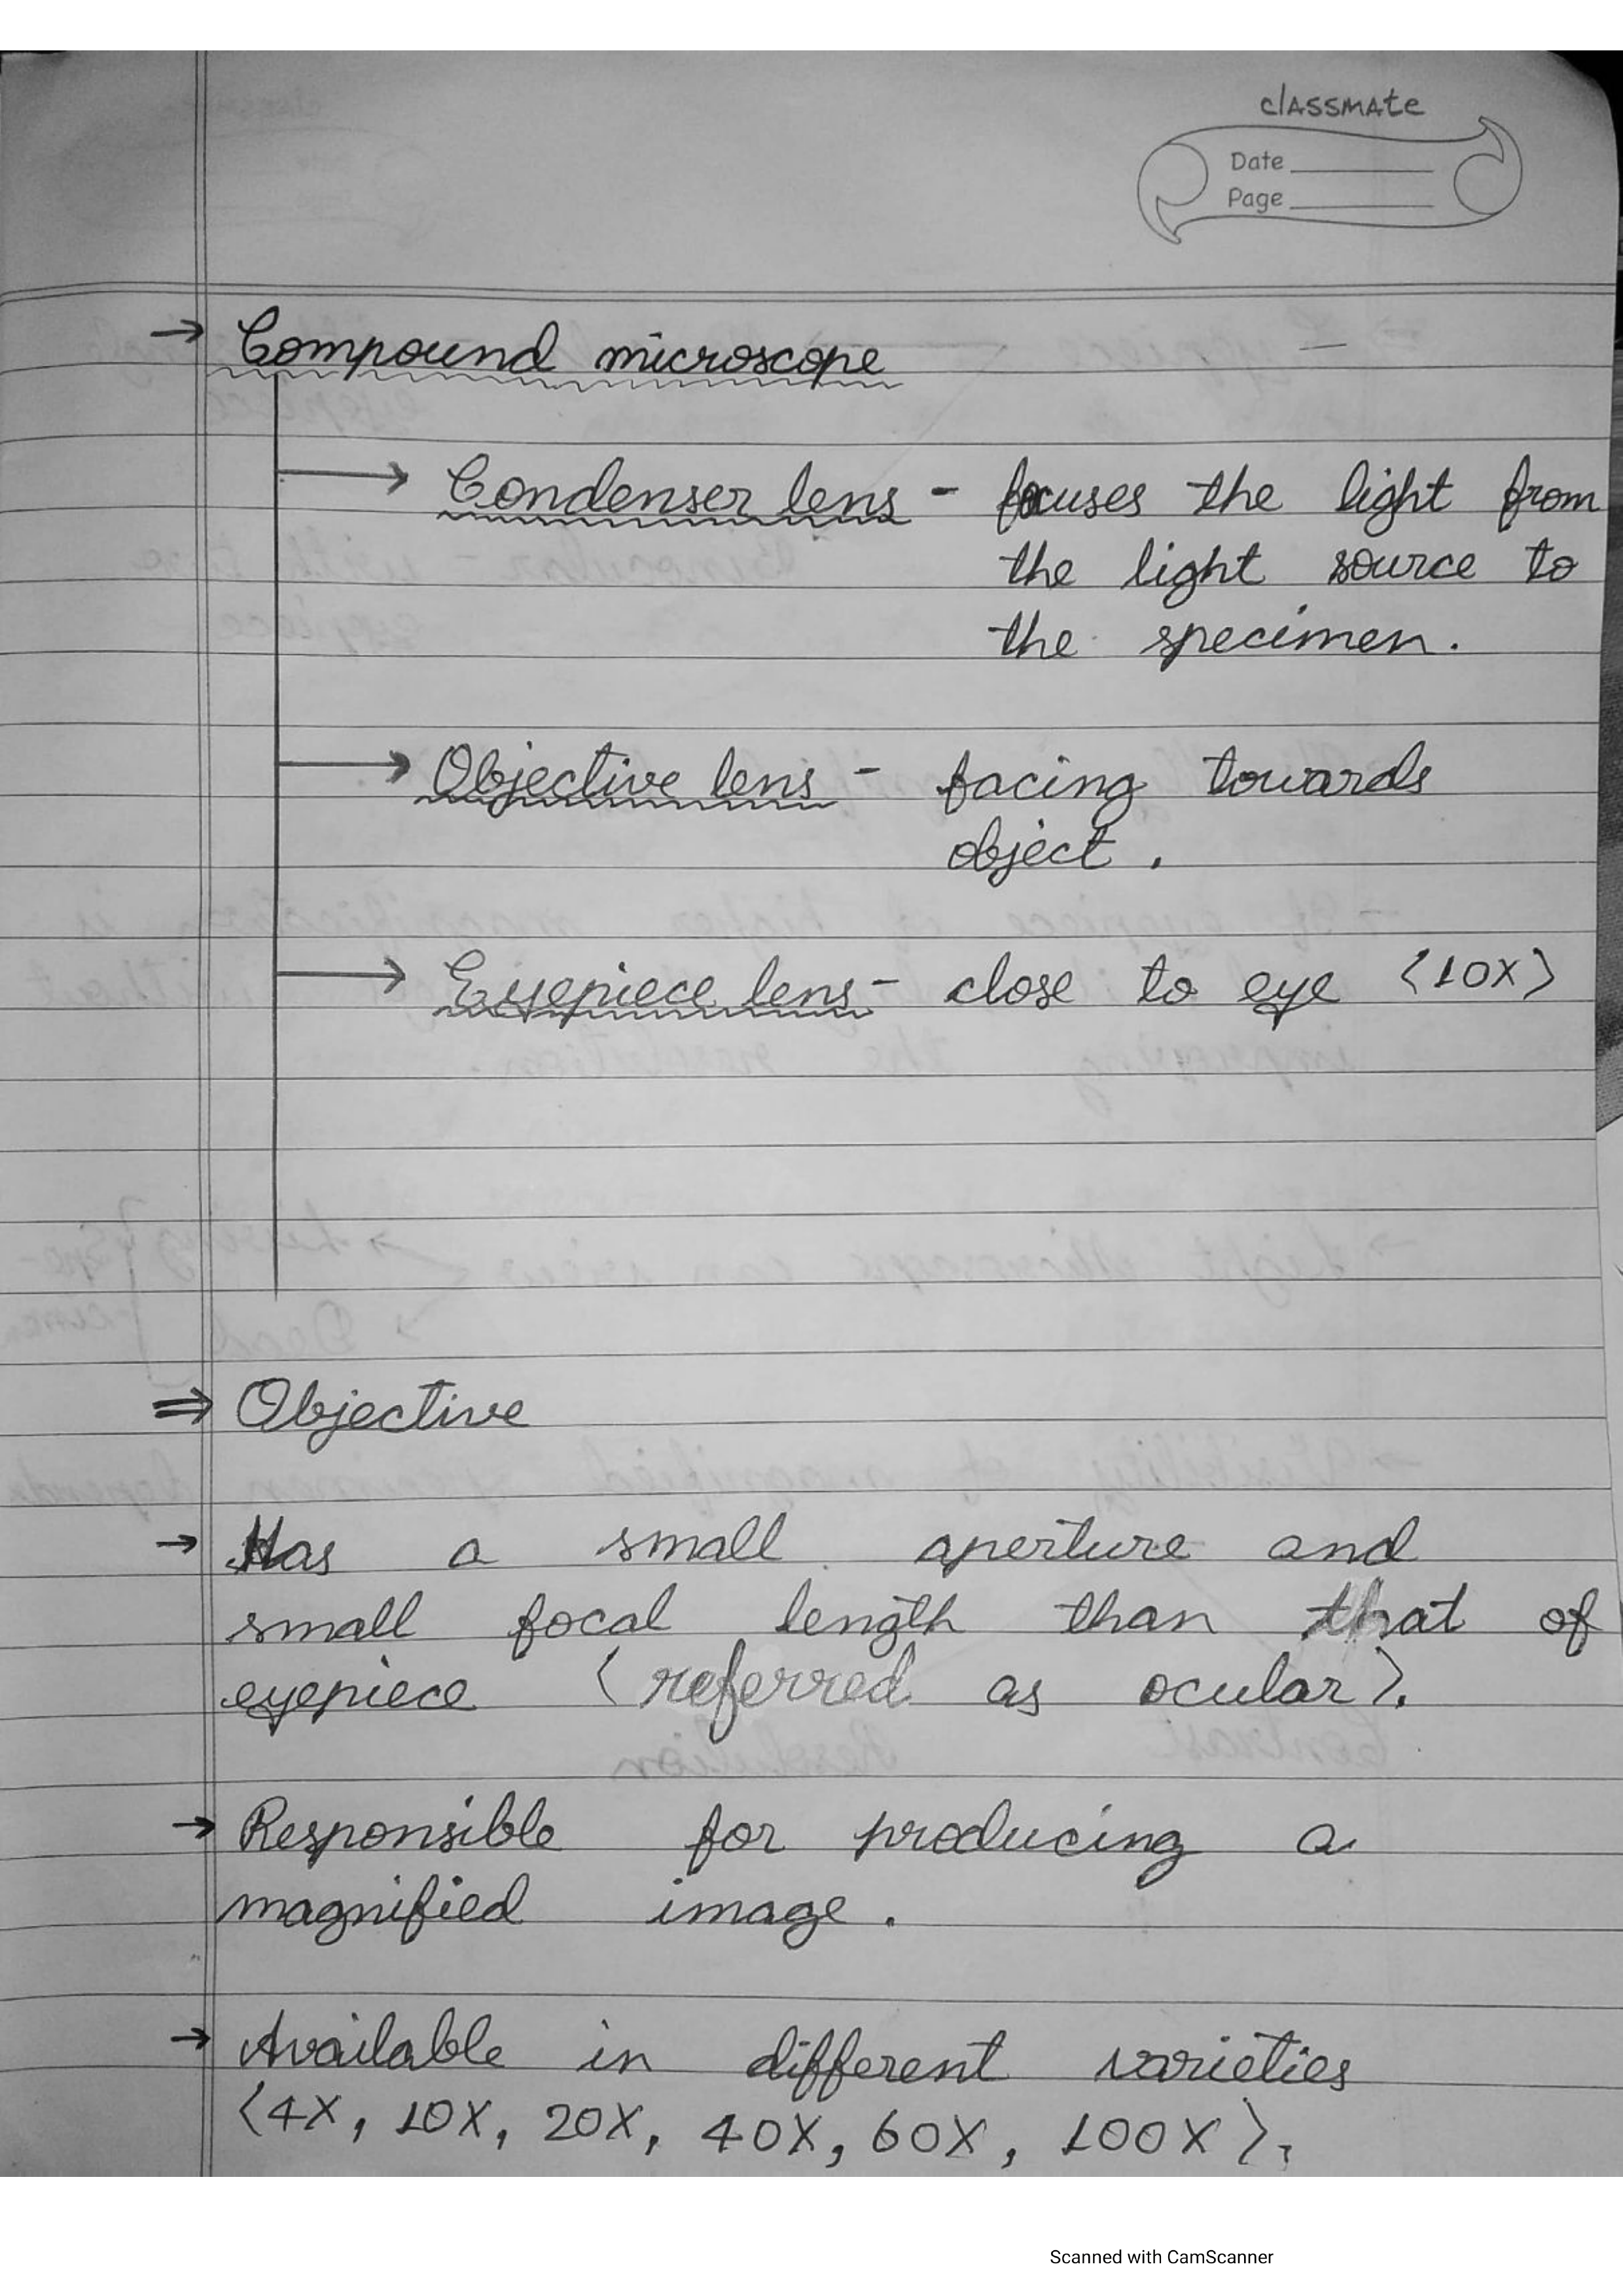 classmate
Date
Page
→ Compound microscope
→ Condenser lens - focuses the light from
the light source to
the specimen.
→ Objective lens - facing towards
object.
→ Eyepiece lens - close to eye (10X)
⇒ Objective
→ Has a small aperture and
small focal length than that of
eyepiece (referred as ocular).
→ Responsible for producing a
magnified image.
→ Available in different varieties
(4X, 10X, 20X, 40X, 60X, 100X).
Scanned with CamScanner